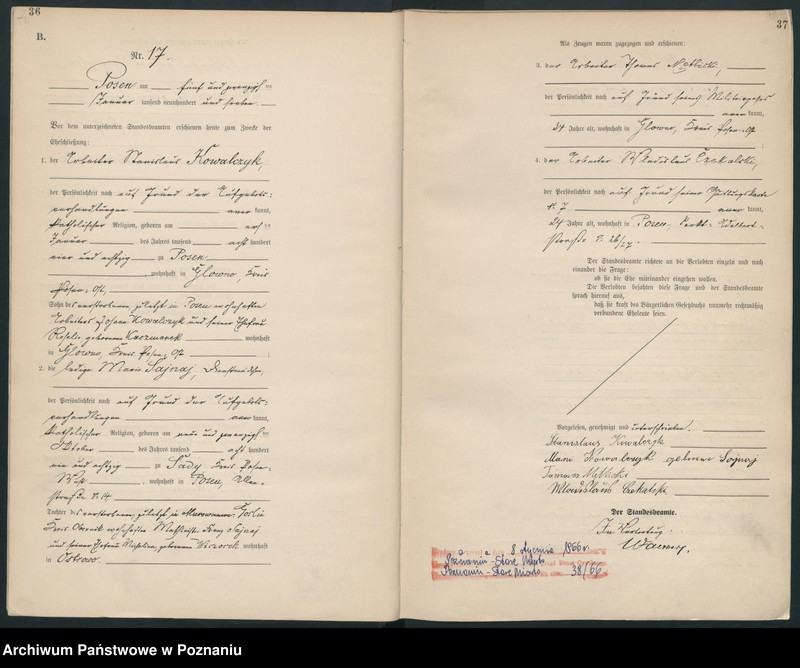 36
B.
Nr. 17.
Posen am fünf und zwanzigsten
Januar tausend neunhundert und sieben
Vor dem unterzeichneten Standesbeamten erschienen heute zum Zwecke der
Eheschließung:
1. der Arbeiter Stanislaus Kowalczyk,
der Persönlichkeit nach auf Grund der Aufgebots-
verhandlungen anerkannt,
katholischer Religion, geboren am
Januar des Jahres tausend acht hundert
vier und achtzig zu Posen
, wohnhaft in Glowno, Kreis
Posen-Ost,
Sohn des verstorbenen, zuletzt in Posen wohnhaften
Arbeiters Kowalczyk und seiner Ehefrau
Rosalie geborenen Kaczmarek wohnhaft
in Glowno, Kreis Posen-Ost
2. die ledige Marie Sajnaj, Dienstmädchen,
der Persönlichkeit nach auf Grund der Aufgebots-
verhandlungen anerkannt,
katholischer Religion, geboren am neun und zwanzigsten
Oktober des Jahres tausend acht hundert
ein und achtzig zu Sady Kreis Posen-
West, wohnhaft in Posen,
straße N. 14
Tochter des verstorbenen, zuletzt in Murowana-Goslin
Kreis Obornik wohnhaften Sajnaj
und seiner Ehefrau geborenen wohnhaft
in
37
Als Zeugen waren zugezogen und erschienen:
3. der Arbeiter Thomas
der Persönlichkeit nach auf Grund seines Militärpasses
anerkannt,
24 Jahre alt, wohnhaft in Glowno, Kreis Posen-Ost
4. der Arbeiter Wladislaus Czekalski,
der Persönlichkeit nach auf Grund seiner Quittungskarte
N. 7 anerkannt,
24 Jahre alt, wohnhaft in Posen, Sankt-Adalbert-
straße N. 26/27.
Der Standesbeamte richtete an die Verlobten einzeln und nach
einander die Frage:
ob sie die Ehe miteinander eingehen wollen.
Die Verlobten bejahten diese Frage und der Standesbeamte
sprach hierauf aus,
daß sie kraft des Bürgerlichen Gesetzbuchs nunmehr rechtmäßig
verbundene Eheleute seien.
Vorgelesen, genehmigt und unterschrieben.
Stanislaus Kowalczyk
Marie Kowalczyk geborene Sajnaj
Tomasz
Wladislaus Czekalski
Der Standesbeamte.
In Vertretung.
8 stycznia 1966 r.
Poznaniu - Stare Miasto
Poznaniu - Stare Miasto 38/66
Archiwum Państwowe w Poznaniu